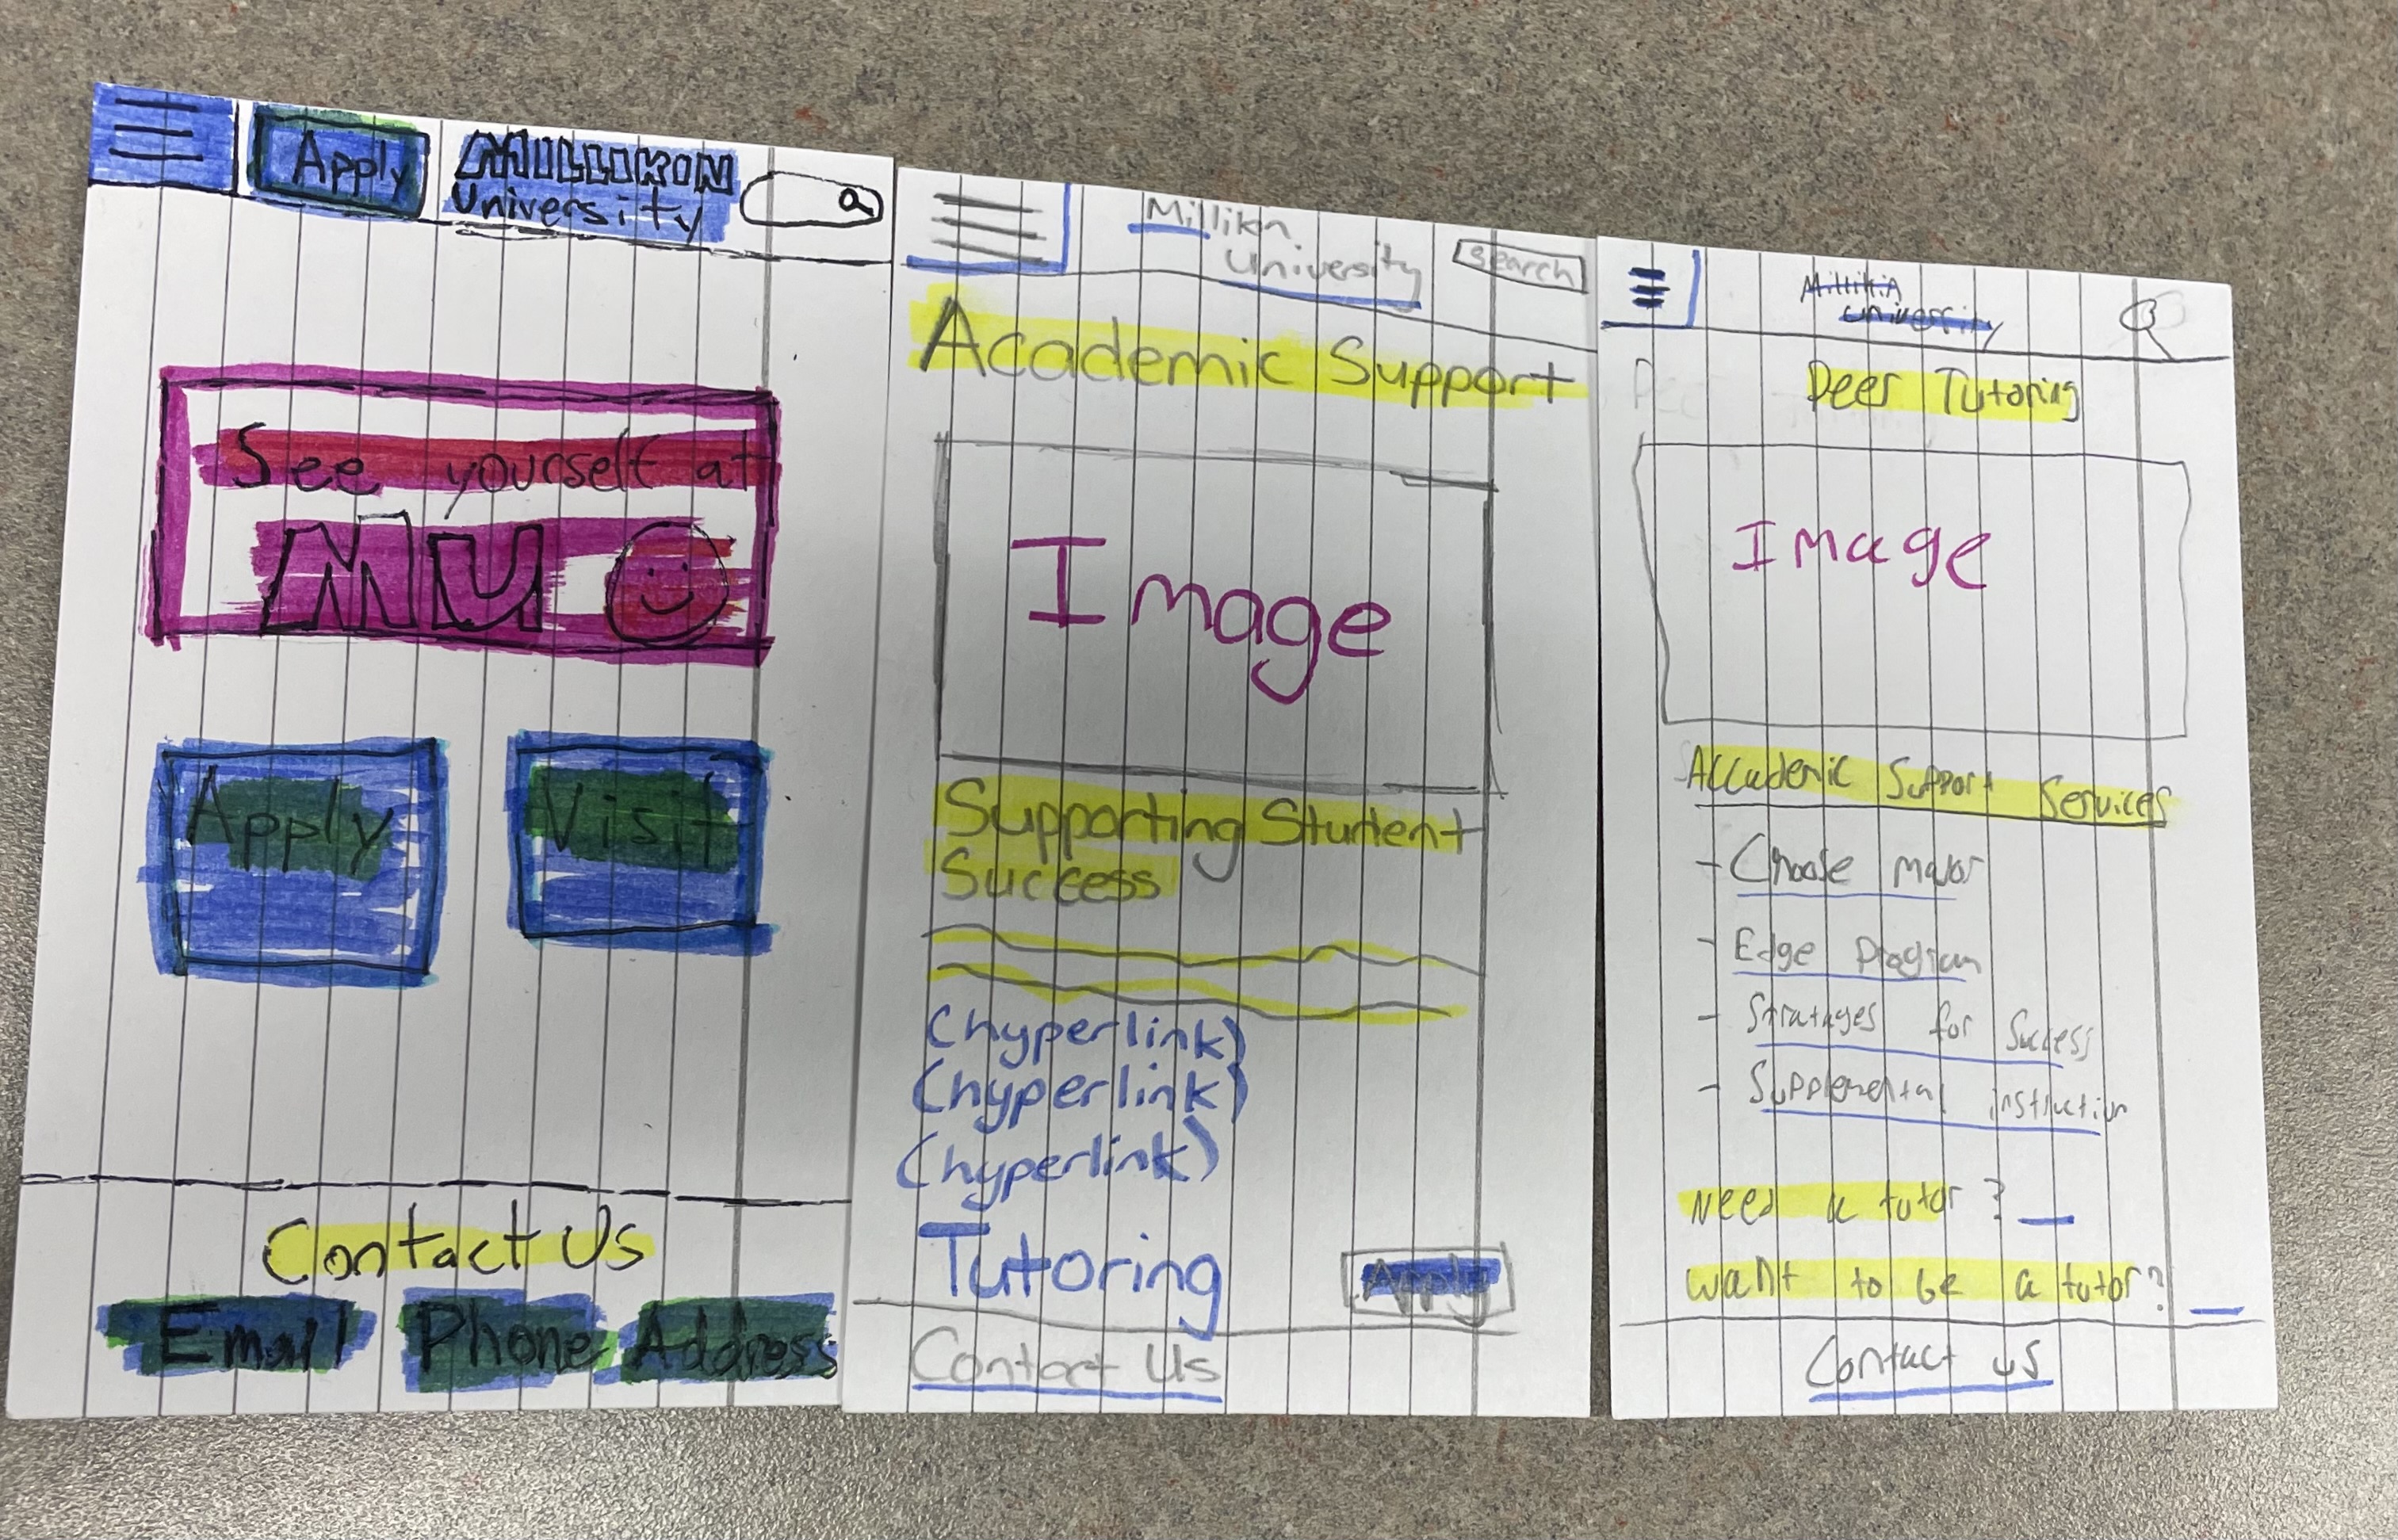 Apply
MILLIKIN
University
See yourself at
MU
Apply
Visit
Contact Us
Email Phone Address
Millikn
University
Search
Academic Support
Image
Supporting Student
Success
(hyperlink)
(hyperlink)
(hyperlink)
Tutoring
Apply
Contact Us
Millikin
university
Peer Tutoring
Image
Accademic Support Services
- Choose major
- Edge program
- Stratages for Success
- Supplemental instruction
Need a tutor?
Want to be a tutor?
Contact us